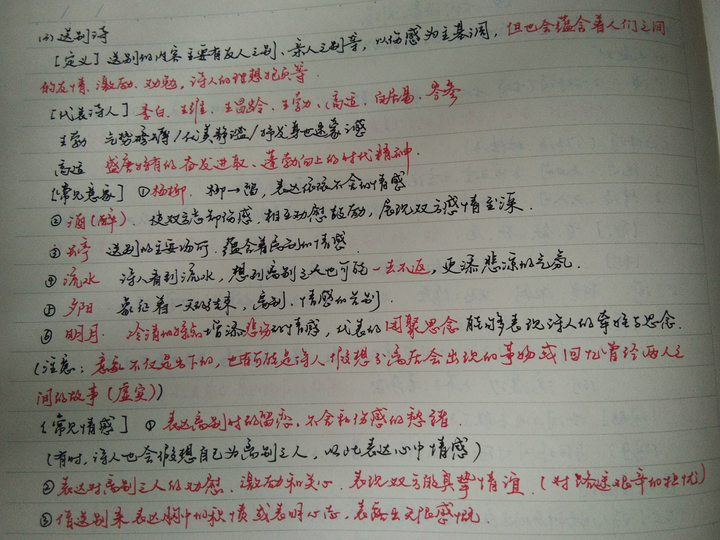 (4)送别诗
[定义] 送别的内容主要有友人之别、亲人之别等,以伤感为主基调,但也会蕴含着人们之间
的友情、激励、劝勉,诗人的理想抱负等.
[代表诗人] 李白、王维、王昌龄、王勃、高适、白居易、岑参
王勃 气势磅礴/优美静谧/抒发身世迷蒙感
高适 盛唐时期有的奋发进取、蓬勃向上的时代精神.
[常见意象] ①杨柳. 柳→留,表达依依不舍的情感
②酒(醉). 使双方忘却伤感,相互劝慰鼓励,展现双方感情至深.
③长亭 送别的主要场所.蕴含着离别的情感.
④流水 诗人看到流水,想到离别之人也可能一去不返,更添悲凉的气氛.
⑤夕阳 象征着一天的结束,离别、情感的告别.
⑥明月. 冷清的特点增添悲伤的情感,代表的团聚思念能够表现诗人的牵挂与思念.
(注意:意象不仅是当下的,也有可能是诗人假想分离后会出现的事物或回忆曾经两人之
间的故事(虚实))
[常见情感] ①表达离别时的留恋、不舍和伤感的愁绪.
(有时,诗人也会假想自己为离别之人,以此表达心中情感)
②表达对离别之人的劝慰、激励和关心.表现双方的真挚情谊.(对路途艰辛的担忧)
③借送别来表达胸中的积愤或表明心志,表露出无限感慨.